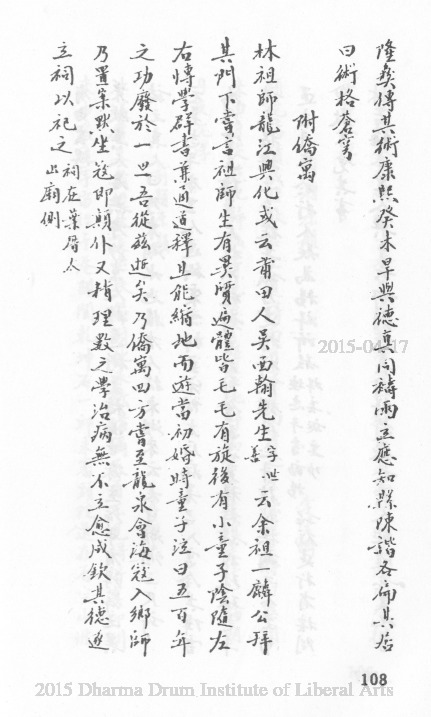 隆彜得其術康熙癸未旱與德真同禱雨立應知縣陳諧各扁其居
曰術格蒼穹
附僑寓
林祖師龍江興化或云莆田人吳西翰先生字世善云余祖一麟公拜
其門下嘗言祖師生有異質遍體皆毛毛有旋後有小童子陰隨左
右博學群書兼通道釋且能縮地而遊當初婚時童子泣曰五百年
之功廢於一旦吾從茲逝矣乃僑寓四方嘗至龍泉會海寇入鄉師
乃置案默坐寇即顛仆又精理數之學治病無不立愈咸欽其德遂
立祠以祀之祠在葉厝太山廟側
2015-04-17
108
2015 Dharma Drum Institute of Liberal Arts